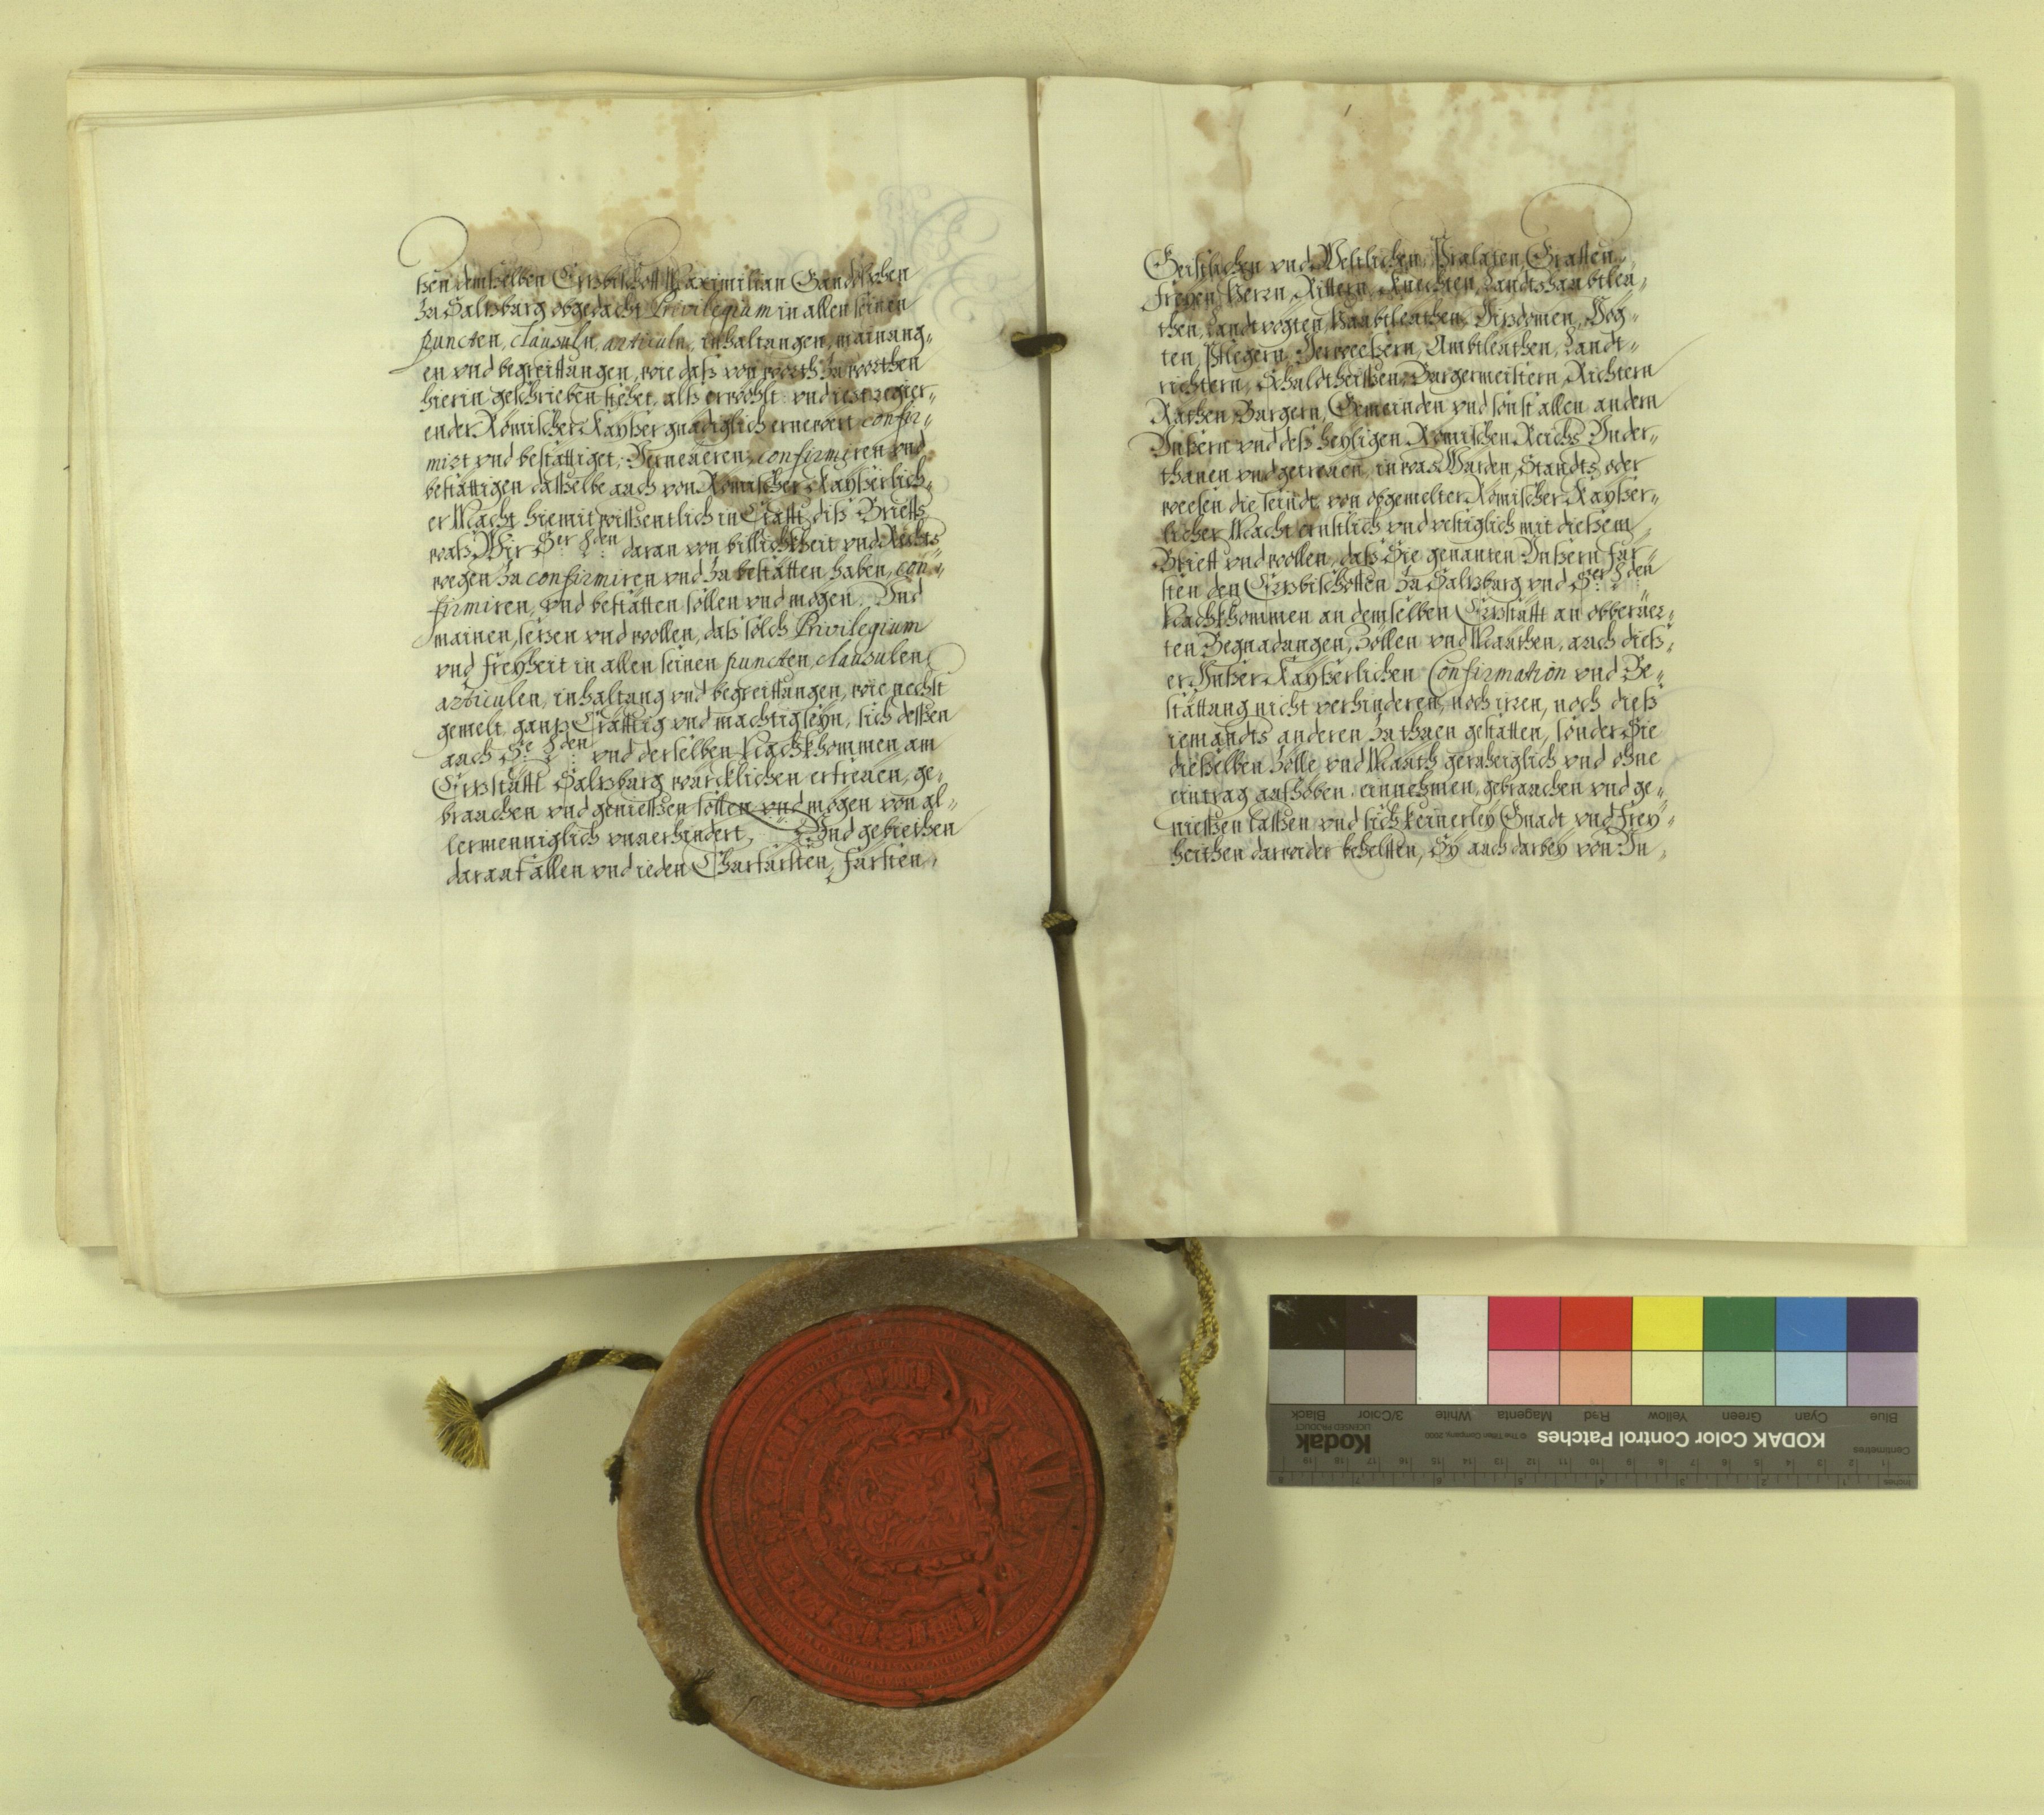 ßen demselben Erzbischoff Maximilian Gandolphen
zu Saltzburg obgedacht Privilegium in allen seinen
puncten, clausuln, articuln, inhaltungen, mainung-
en vnd begreiffungen, wie daß von worth zu worthen
hierin geschrieben stehet, alß erwöhlt: vnd iezt regier-
ender Römischer Kayßer gnädiglich ernewert confir-
mirt vnd bestättiget; Verneueren, confirmiren vnd
bestättigen dasselbe auch von Römischer Kayßerlich-
er Macht hiemit wissentlich in Crafft diß Brieffs
waß Wir Sr: Lden: daran von billichkheit vnd Rechts
wegen zu confirmiren vnd zu bestätten haben, con-
firmiren, vnd bestätten sollen vnd mögen. Vnd
mainen, setzen vnd wollen, daß solch Privilegium
vnd freyheit in allen seinen puncten, clausulen,
articulen, inhaltung vnd begreiffungen, wie nechst
gemelt, gantz Cräfftig vnd mächtig seyn, sich dessen
auch Se: Lden: vnd derselben Nachkhommen am
Erzstüfft Saltzburg würcklichen erfreuen, ge-
brauchen vnd geniessen sollen vnd mögen von al-
lermenniglich vnuerhindert. Vnd gebiethen
darauf allen vnd ieden Churfürsten, Fürsten,
Geistlichen vnd Weltlichen, Prälaten, Graffen,
Freyen, Herrn, Rittern, Knechten, Landtshaubtleu-
then, Landtvögten, Haubtleuthen, Vizdomen, Vög-
ten, Pflegern, Verweesern, Ambtleuthen, Landt-
richtern, Schuldtheissen, Burgermeistern, Richtern
Räthen, Burgern, Gemeinden vnd sonst allen andern
Vnßern vnd deß heyligen Römischen Reichs Vnder-
thanen vnd getreuen, in was Würden, Standts oder
weesen die seindt, von obgemelter Römischer Kayßer-
licher Macht ernstlich vnd vestiglich mit dießem
Brieff vnd wollen, daß Sie genanten Vnßern Für-
sten den Erzbischoffen zu Saltzburg vnd Sr: Lden:
Nachkhommen an demselben Erzstüfft an obberüer-
ten Begnadungen, Zöllen vnd Mauthen, auch dieß-
er Vnßer Kayßerlichen Confirmation vnd Be-
stättung nicht verhinderen, noch irren, noch dieß
iemandts anderen zu thuen gestatten, sonder Sie
dießelben Zölle vnd Mauth geruheiglich vnd ohne
eintrag aufhöben, einnehmen, gebrauchen vnd ge-
niessen lassen vnd sich keinerley Gnadt vnd Frey-
heithen darwider behelffen, Sy auch darbey von Vn-
KODAK Color Control Patches
Kodak
LICENSED PRODUCT
© The Tiffen Company, 2000
Blue Cyan Green Yellow Red Magenta White 3/Color Black
Centimetres
Inches